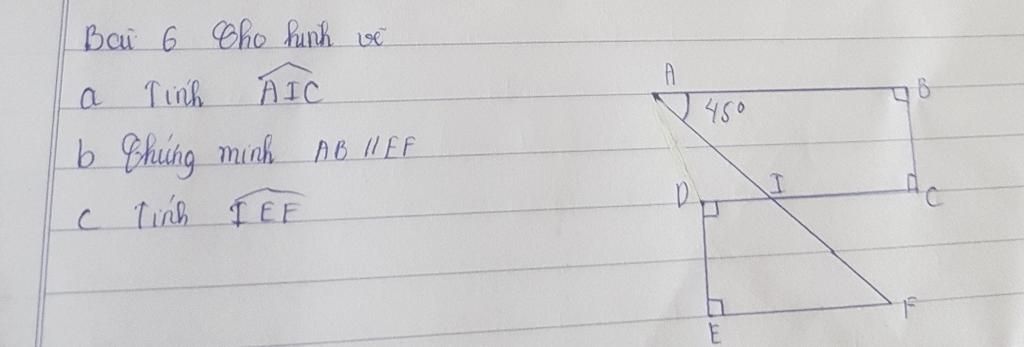 Bài 6 Cho hình vẽ
a Tính AIC
b Chứng minh AB // EF
c Tính IEF
A
45°
B
D
I
C
E
F